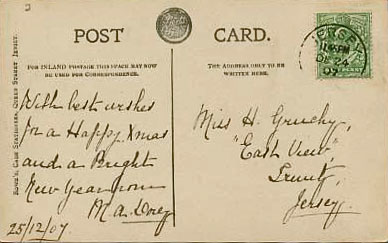 POST CARD.
FOR INLAND POSTAGE THIS SPACE MAY NOW
BE USED FOR CORRESPONDENCE.
THE ADDRESS ONLY TO BE
WRITTEN HERE.
With best wishes
for a Happy Xmas
and a Bright
New Year from
M. A. Dorey
25/12/07.
Miss H. Gruchy,
"East View",
Trinity,
Jersey.
JERSEY
DE 24
07